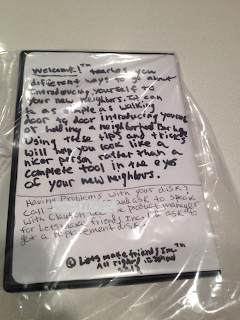 "Welcome!"™ teaches you
different ways to go about
introducing yourself to
your new neighbors. It can
be as simple as walking
door to door introducing yourself
or holding a neighborhood
Using these tips and tricks
will help you look like a
nicer person rather than a
complete tool in the eyes
of your new neighbors.
Having Problems with your disk?
Call and ask to speak
with the product manager
for Lets make friends, Inc. & ask to
get a replacement disk.
© Lets make friends, Inc.™
All rights